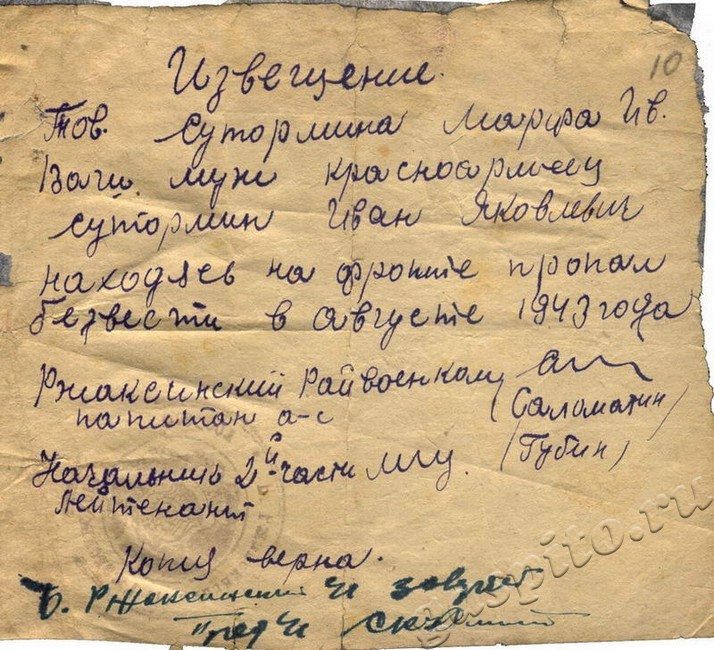 10
Извещение.
Тов. Сутормина Марфа Ив.
Ваш муж красноармеец
Сутормин Иван Яковлевич
находясь на фронте пропал
безвести в августе 1943 года
Ржаксинский Райвоенком
капитан а-с (Саломатин)
Начальник 2й части (Губин)
лейтенант
Копия верна.
Ржаксинский
gaspito.ru